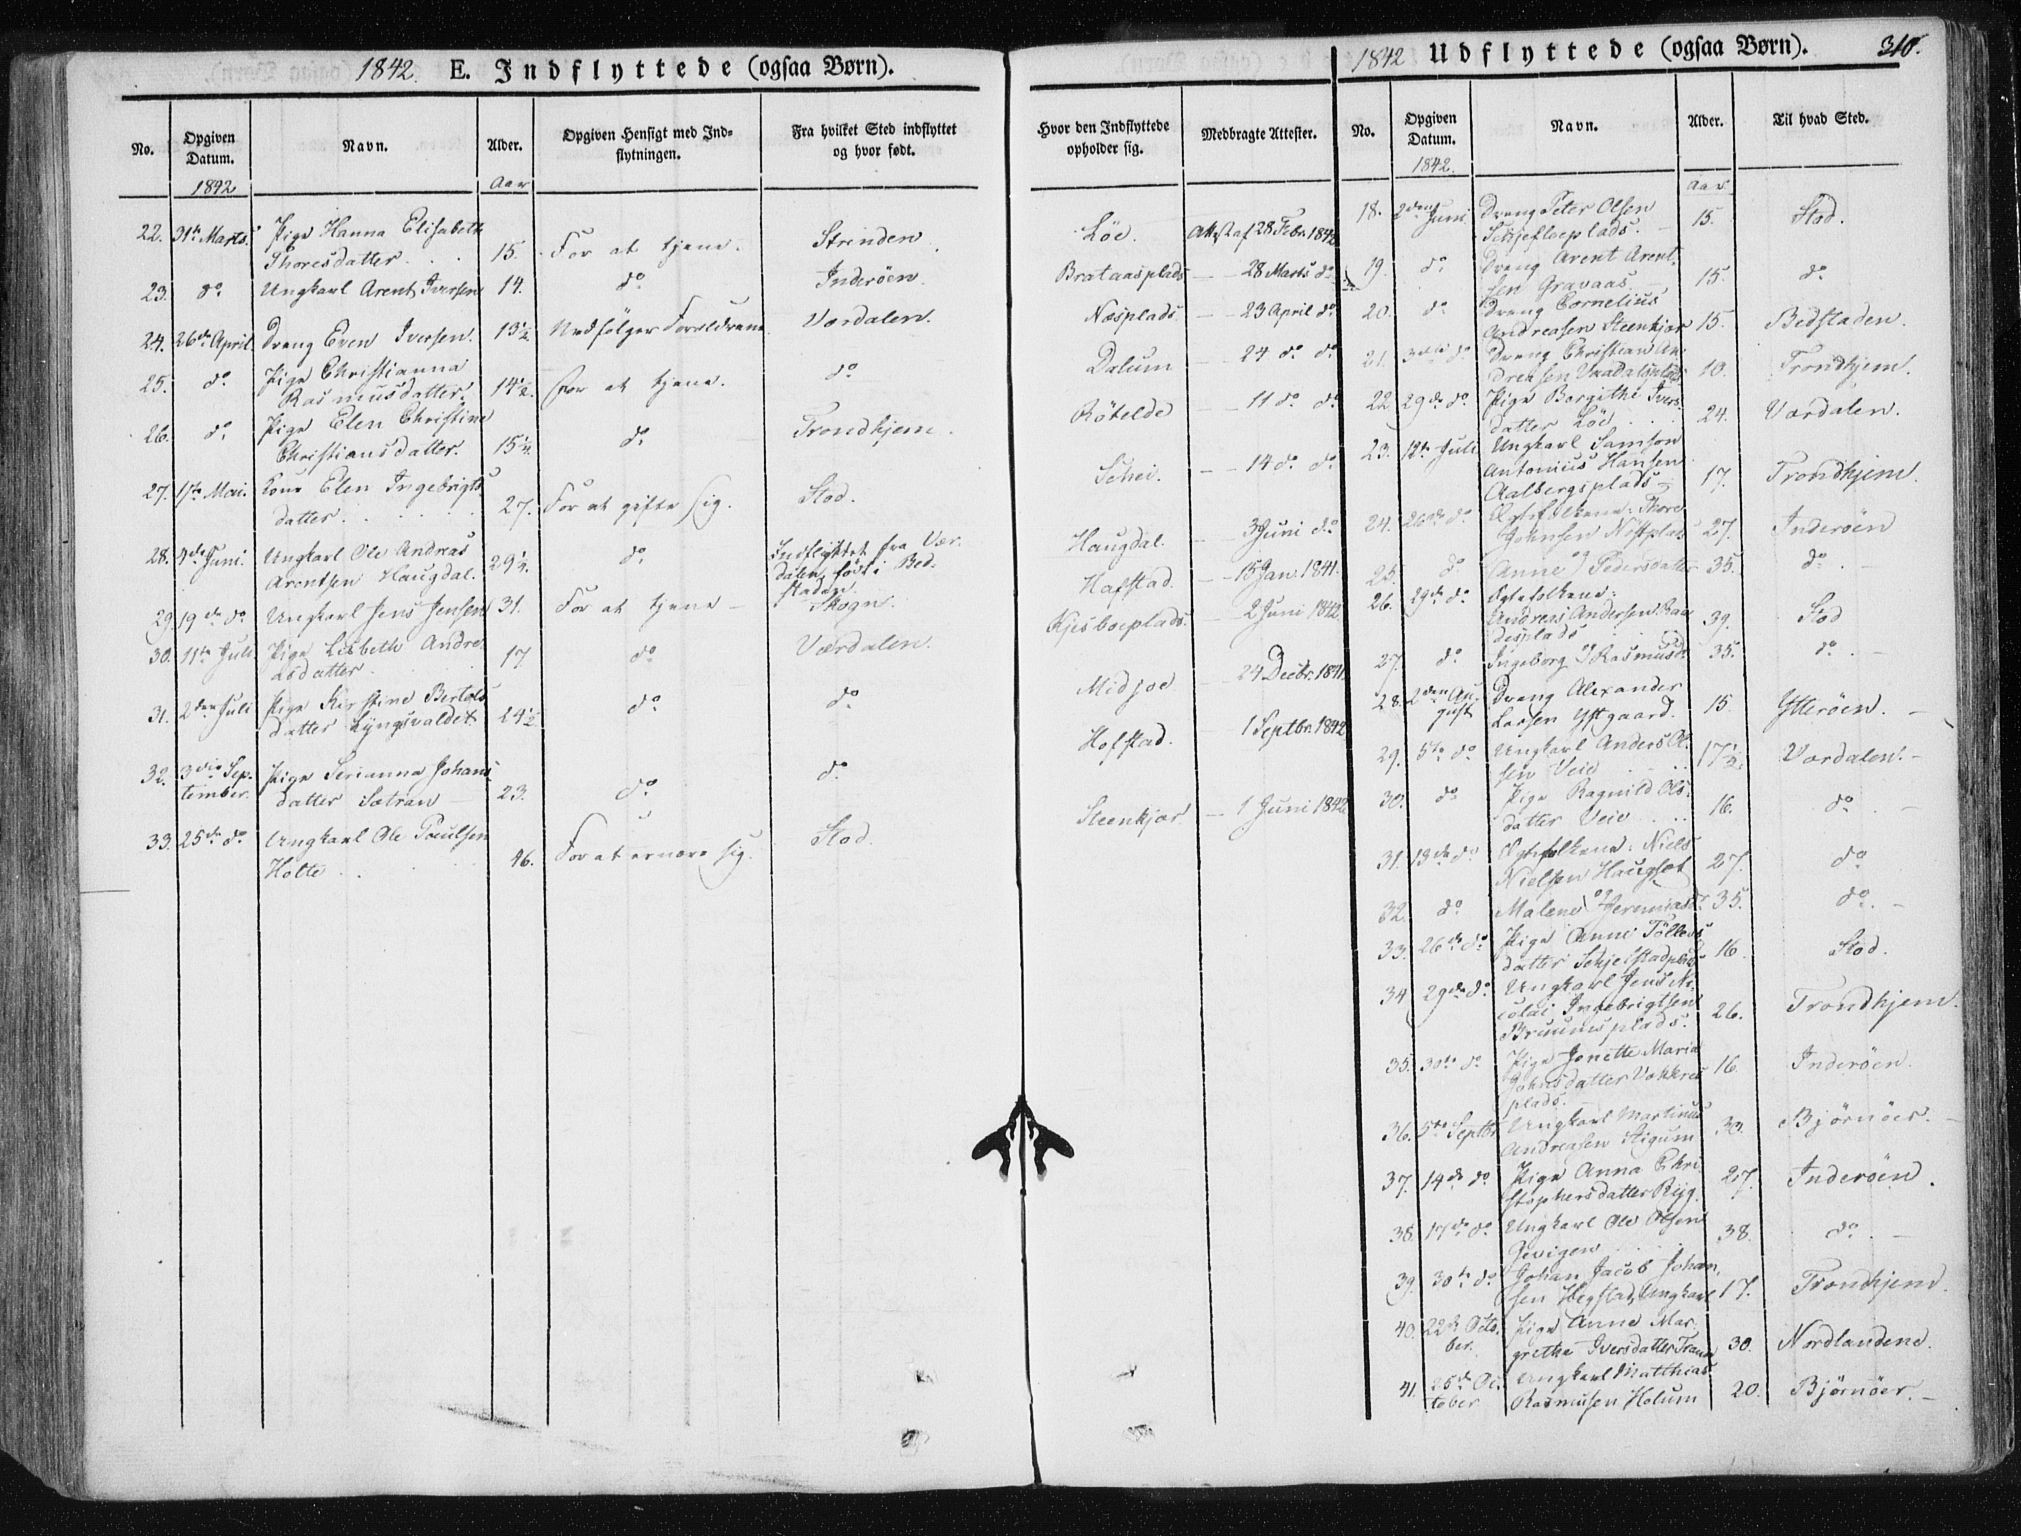 1842. E. Indflyttede (ogsaa Børn).
No. Opgiven Datum. Navn. Alder. Opgiven Hensigt med Indflytningen. Fra hvilket Sted indflyttet og hvor født. Hvor den Indflyttede opholder sig. Medbragte Attester.
1842 Aar
22. 31te Marts. Pige Hanna Elisabeth
Thoresdatter. 15. For at tjene. Strinden. Löe. Attest af 28 Febr. 1842
23. do Ungkarl Arent Iversen 14. do Inderöen. Brataasplads — 28 Marts do
24. 26de April. Dreng Even Iversen. 13½ Medfölger Forældrene Værdalen. Næsplads — 23 April do
25. do Pige Christianna
Rasmusdatter. 14½. for at tjene. do Dalum — 24 do do
26. do Pige Elen Christine
Christiansdatter. 15¼. do Trondhjem. Rötelde — 11 do do
27. 17de Mai. Kone Elen Ingebrigts
datter. 27. For at gifte sig. Stod. Schei. — 14 do do
28. 4de Juni. Ungkarl Ole Andreas
Arentsen Haugdal. 29¼. do Indflyttet fra Vær-
dalen, født i Bed-
staden. Haugdal. — 3 Juni do
29. 19de do Ungkarl Jens Jensen 31. For at tjene — Skogn. Hafstad. — 15 Jan. 1841.
30. 11te Juli Pige Lisbeth Andre-
asdatter 17 do Værdalen. Kjesboeplads. — 2 Juni 1842
31. 2den Juli Pige Kirstine Bertels
datter Lyngsvaldet 24½ do do Midjoe — 24 Decbr. 1841.
32. 3die Sep-
tember. Pige Serianna Johans
datter Sætran — 23. do do Hofstad. — 1 Septbr. 1842
33. 25de do Ungkarl Ole Paulsen
Holte 46. For at ernære sig. Stod. Steenkjær — 1 Juni 1842
1842 Udflyttede (ogsaa Børn). 310.
No. Opgiven Datum. Navn. Alder. Til hvad Sted.
1842. Aar
18. 2den Juni Dreng Peter Olsen
Schjefloeplads. — 15. Stod.
19. do Dreng Arent Arent-
sen Gravaas. 15. do
20. do Dreng Cornelius
Andreasen Steenkjær 15. Bedstaden.
21. 3die do Dreng Christian An-
dreasen 10. Trondhjem.
22 29de do Pige Borgithe Ivers-
datter Löe 24. Værdalen.
23. 12te Juli Ungkarl Samson
Antonius Hansen
Aalbergsplads — 17. Trondhjem.
24. 26de do Ægtefolkene: Thore
Johnsen Næstplads 27. Inderöen
25. do Anne og Pedersdatter 35. do —
26. 29de do Ægtefolkene:
Andreas Andersen Raa-
desplads 39. Stod
27. do Ingeborg og Rasmusd. 35. do —
28. 2den Au-
gust Dreng Alexander
Larsen Ystgaard. 15 Ytteröen. —
29. 5te do Ungkarl Anders Ol-
sen Veie 17½ Værdalen. —
30. do Pige Ragnild Ols-
datter Veie 16. do —
31. 13de do Ægtefolkene: Niels
Nielsen Haugset 27. do
32. do Malene og Jeremiasd. 35. do —
33. 26de do Pige Anne Tøllevs
datter Schjelstadplads 16. Stod.
34 29de do Ungkarl Jens Ni-
colai Ingebrigtsen
Bruumsplads. 26. Trondhjem.
35. 30te do Pige Jonette Maria
Johnsdatter Vækkres
plads. 16. Inderöen.
36. 5te Septbr. Ungkarl Martinus
Andreasen Stigum 30. Bjørnöer. —
37. 14de do Pige Anna Chri-
stophersdatter Ryg. 27. Inderöen.
38. 17de do Ungkarl Ole Olsen
Gevigen 38. do —
39. 30te do Johan Jacob Johan-
sen Hegstad, Ungkarl 17. Trondhjem.
40. 22de Octo-
ber. Pige Anne Mar-
grethe Iversdatter Trana 30. Nordlandene.
41. 25de Oc-
tober Ungkarl Matthias
Rasmusen Holum 20. Bjørnöer. —